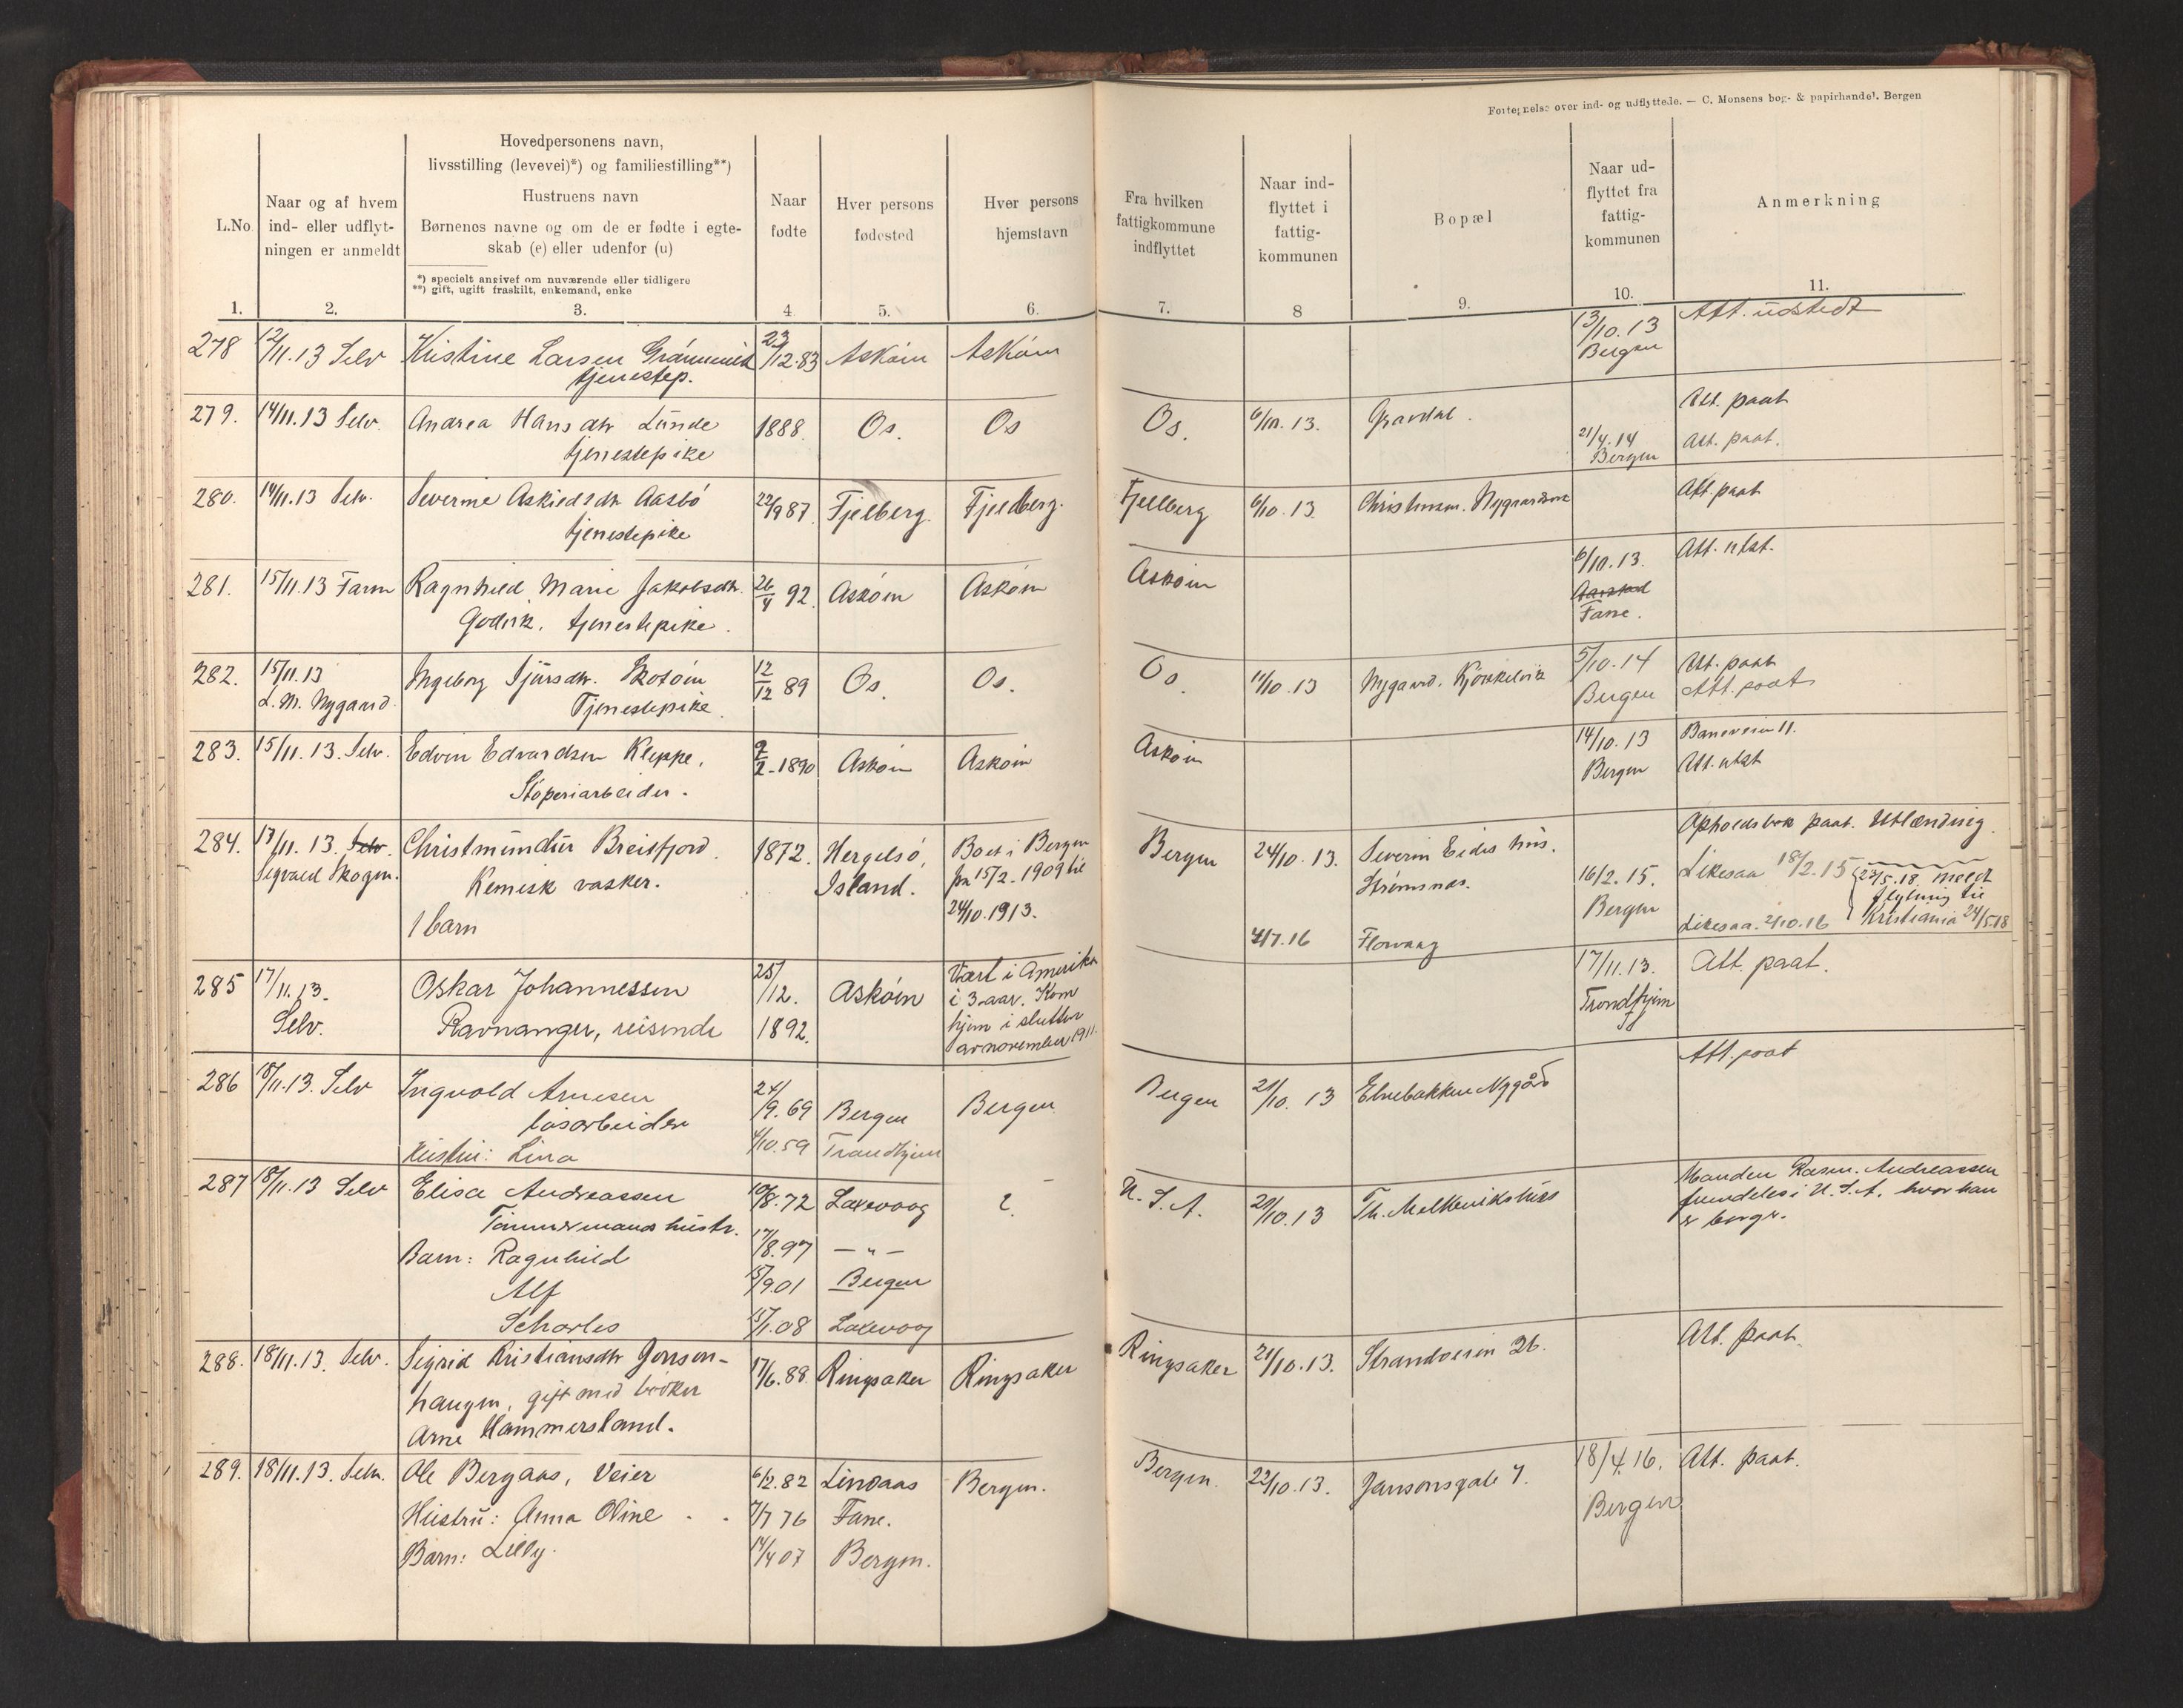 Fortegnelse over ind- og udflyttede. — C. Monsens bog- & papirhandel. Bergen
L.No.
Naar og af hvem
ind- eller udflyt-
ningen er anmeldt
Hovedpersonens navn,
livsstilling (levevei)*) og familiestilling**)
Hustruens navn
Børnenes navne og om de er fødte i egte-
skab (e) eller udenfor (u)
*) specielt angivet om nuværende eller tidligere
**) gift, ugift fraskilt, enkemand, enke
Naar
fødte
Hver persons
fødested
Hver persons
hjemstavn
Fra hvilken
fattigkommune
indflyttet
Naar ind-
flyttet i
fattig-
kommunen
Bopæl
Naar ud-
flyttet fra
fattig-
kommunen
Anmerkning
1. 2. 3. 4 5. 6. 7. 8 9. 10. 11.
278 12/11.13 Selv Kristine Larsen 23/12.83 Askøin Askøin 13/10.13 Att. udstedt
tjenestep. Bergen
279. 14/11.13 Selv. Andrea Hansdtr Lunde 1888. Os. Os Os. 6/10.13. Gravdal. Att. paat
tjenestepike 21/4.14 Att. paat.
Bergen
280. 14/11.13 Selv. Severine Askieldsdtr Aasbø 22/9 87. Fjelberg. Fjeldberg. Fjelberg 6/10.13. Att. paat
tjenestepike
281. 15/11.13 Ragnhild Marie Jakobsdtr. 26/4 92. Askøin Askøin Askøin 6/10.13. Att. utst.
Godvik, tjenestepike. Aarstad
Fane.
282. 15/11.13 Ingeborg Sjursdtr. Skotøin 12/12 89 Os. Os. Os. 11/10.13 Nygaard. Kjøkkelvik 5/10.14 Att. paat
L. M. Nygaard Tjenestepike. Bergen Att. paat
283. 15/11.13. Selv. Edvin Edvardsen Kleppe, 9/2-1890 Askøin Askøin Askøin 14/10.13 Baneveien 11.
Støperiarbeider. Bergen Att. utst
284. 17/11.13. Selv. Christmundur Breidfjord. 1872. Hergelsø, Boet i Bergen Bergen 24/10.13. Severin Eides hus. Opholdsbok paat. Utlænding.
Sigvald Skogen. Kemisk vasker. Island. fra 15/2-1909 til Strømsnes. 16/2.15. Likesaa 18/2.15 23/5.18 meldt
1 barn 24/10.1913. Bergen flytning til
4/7.16 Florvaag Likesaa. 2/10.16 Kristiania 24/5.18
285 17/11.13. Oskar Johannessen 25/12. Askøin Vært i Amerika 17/11.13. Att. paat.
Selv. Ravnanger, reisende 1892. i 3 aar. Kom Trondhjem
hjem i slutten
av november 1911.
286 18/11.13. Selv Ingvald Arnesen 24/9.69 Bergen Bergen Bergen 21/10.13 Elvebakken Nygård Att. paat
løsarbeider
Hustru: Lina 4/10.59 Trondhjem
287 18/11.13 Selv Elisa Andreassen 10/8.72 Laxevaag ? U. S. A. 20/10.13 Manden Rasm. Andreassen
Tømmermands hustr. fremdeles i U.S.A. hvor han
Barn: Ragnhild 17/8.97 —„— er borger.
Alf 15/9.01 Bergen
Scharles 15/1.08 Laxevaag
288. 18/11.13. Selv. Sigrid Kristiansdtr Jonson- 17/6.88. Ringsaker Ringsaker Ringsaker 21/10.13. Strandveien 26. Att. paat.
haugen, gift med bødker
Arne Hammersland.
289. 18/11.13. Selv. Ole Bergaas, Veier 6/2.82 Lindaas Bergen. Bergen. 22/10.13. Jansonsgate 7. 18/4.16. Att. paat.
Hustru: Anna Oline 7/7 76 Fane. Bergen
Barn: Lilly. 14/4 07 Bergen.